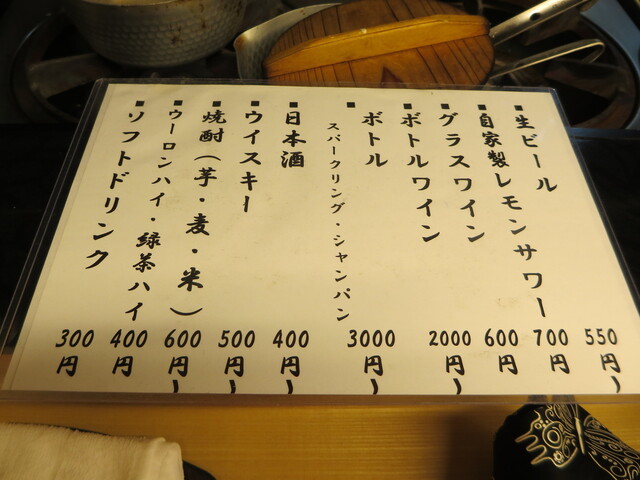 ■生ビール 550円〜
■自家製レモンサワー 700円
■グラスワイン 600円
■ボトルワイン 2000円〜
■ボトル
スパークリング・シャンパン 3000円〜
■日本酒 400円〜
■ウイスキー 500円〜
■焼酎(芋・麦・米) 600円〜
■ウーロンハイ・緑茶ハイ 400円
■ソフトドリンク 300円